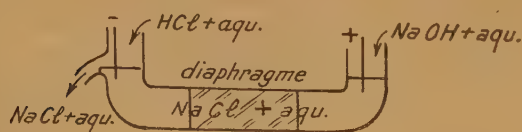 -
HCl+aqu.
+
NaOH+aqu.
diaphragme
NaCl+aqu.
NaCl + aqu.